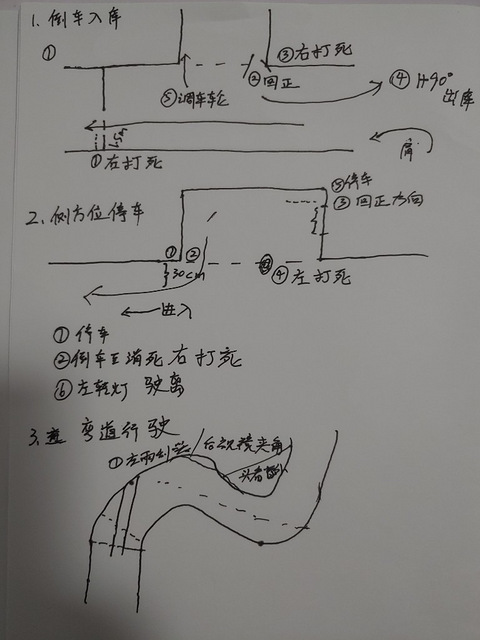 1. 倒车入库
①
③右打死
②回正
④ H90°
出库
⑤调车轮
①右打死
肩
2. 侧方位停车
⑤停车
③回正方向
① ②
30cm
④左打死
←进入
①停车
②倒车 消死 右打死
⑥左转灯 驶离
3. 弯道行驶
①左雨刮 后视镜夹角